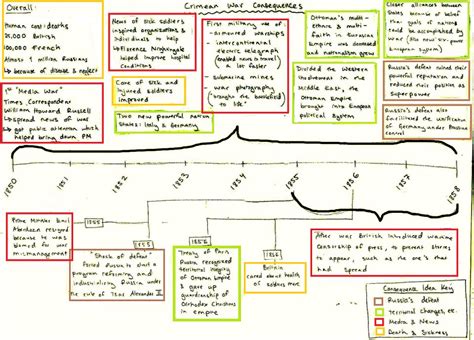 Crimean War Consequences
Overall:
Human cost/deaths:
25,000 British
100,000 French
Almost 1 million Russians
↳ because of disease & neglect
1st "Media War"
Times Correspondent
William Howard Russell
↳ spread news of war
↳ got public attention which
helped bring down PM
News of sick soldiers
inspired organizations &
individuals to help
↳ Florence Nightingale
helped improve hospital
conditions
Care of sick and
injured soldiers
improved
Two new powerful nation
states: Italy & Germany
First military use of
- armoured warships
- intercontinental
electric telegraph
(enabled news to travel
a lot faster)
- submarine mines
- war photography
(brought the battlefield
to life"
Ottoman's multi-
ethnic & multi-
faith in Eurasian
Empire was doomed
and nationalism grew
Divided the Western
involvement in the
Middle East, the
Ottoman Empire
brought into European
political system
Closer alliances between
states because of belief
that goals of nations
could be accomplished by
war
Russia's defeat ruined their
powerful reputation and
reduced their position as
Super power
Russia's defeat also
facilitated the unification
of Germany under Prussian
control
1850
1851
1852
1853
1854
1855
1856
1857
1858
Prime Minister
Aberdeen resigned
because he was
blamed for war
mismanagement
1855
1853
"Shock of defeat"
forced Russia to start a
program reforming and
industrializing Russia under
the rule of Tsar Alexander II
1856
Treaty of Paris
Russia recognized
territorial integrity
of Ottoman Empire
& gave up
guardianship of
Orthodox Christians
in empire
1856
Britain
cared about health
of soldiers more
After war British introduced wartime
censorship of press, to prevent stories
to appear, such as the one's that
had spread
Consequence Idea Key
Russia's defeat
Territorial changes, etc.
Media & News
Death & Sickness